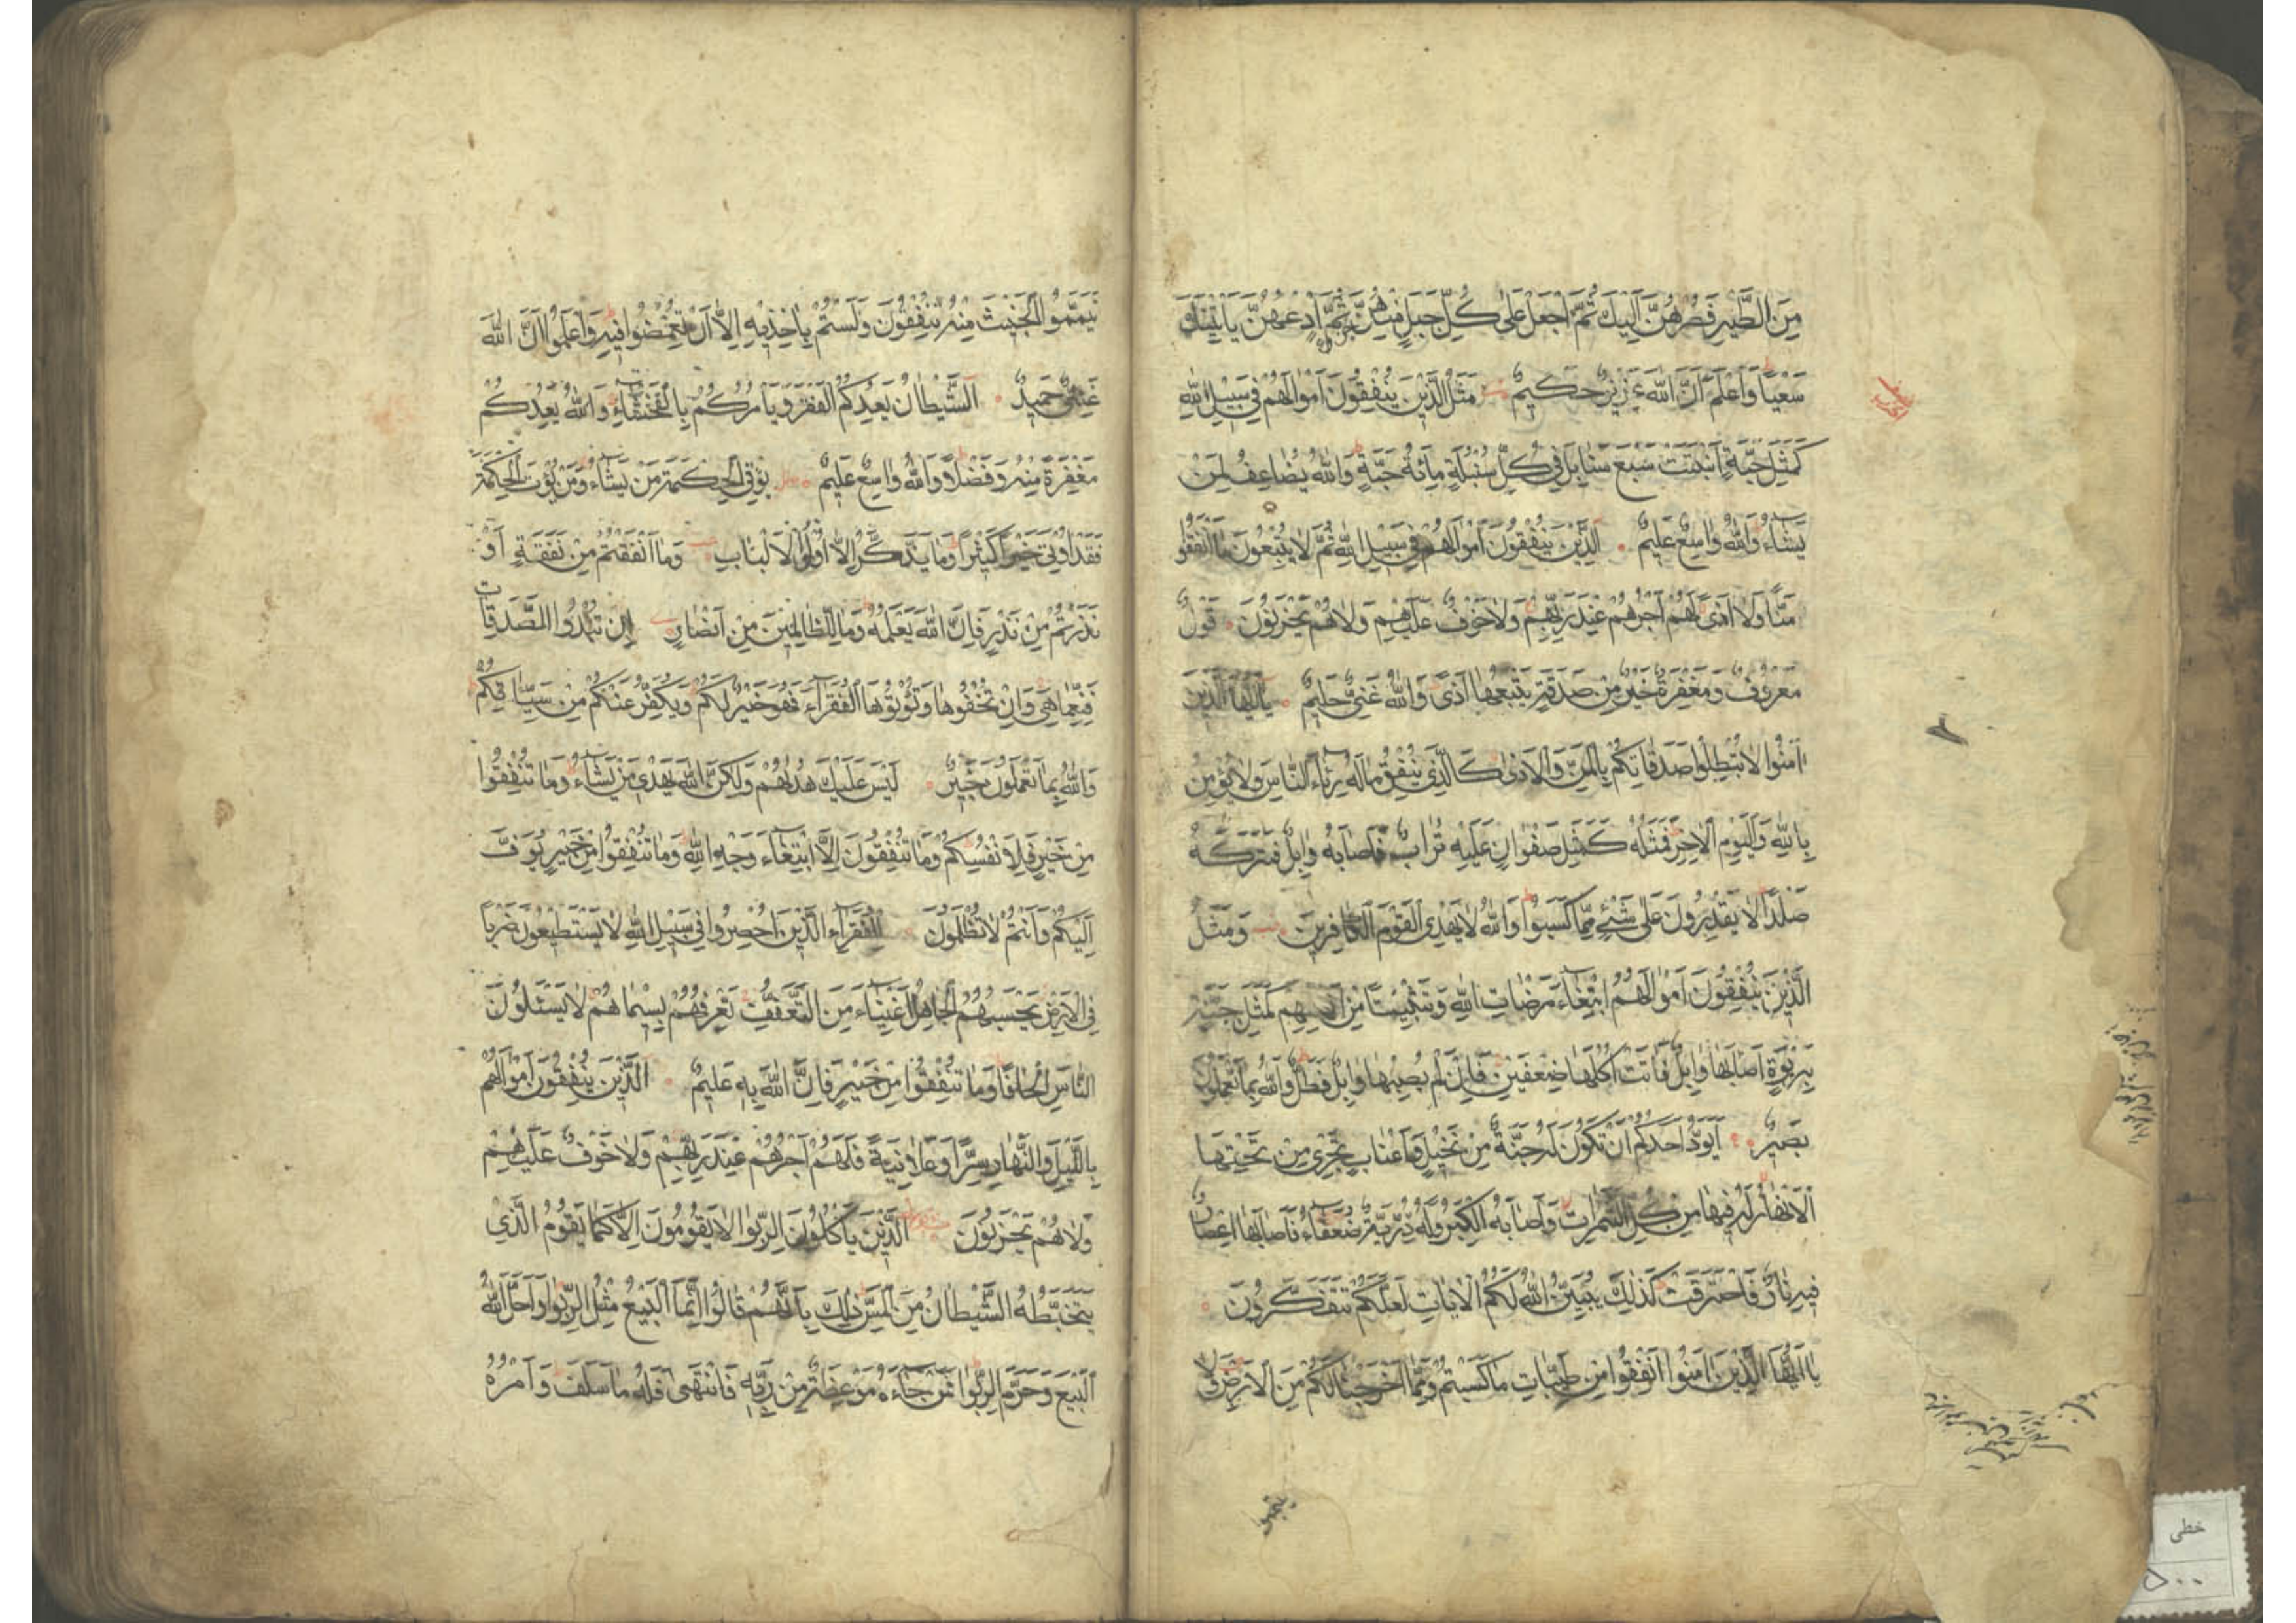 مِنَ الطَّيْرِ فَصُرْهُنَّ اِلَيْكَ ثُمَّ اجْعَلْ عَلٰى كُلِّ جَبَلٍ مِنْهُنَّ جُزْءًا ثُمَّ ادْعُهُنَّ يَاْتِينَكَ
سَعْيًا وَاعْلَمْ اَنَّ اللّٰهَ عَزِيزٌ حَكِيمٌ مَثَلُ الَّذِينَ يُنْفِقُونَ اَمْوَالَهُمْ فِي سَبِيلِ اللّٰهِ
كَمَثَلِ حَبَّةٍ اَنْبَتَتْ سَبْعَ سَنَابِلَ فِي كُلِّ سُنْبُلَةٍ مِائَةُ حَبَّةٍ وَاللّٰهُ يُضَاعِفُ لِمَنْ
يَشَاءُ وَاللّٰهُ وَاسِعٌ عَلِيمٌ الَّذِينَ يُنْفِقُونَ اَمْوَالَهُمْ فِي سَبِيلِ اللّٰهِ ثُمَّ لَا يُتْبِعُونَ مَا اَنْفَقُوا
مَنًّا وَلَا اَذًى لَهُمْ اَجْرُهُمْ عِنْدَ رَبِّهِمْ وَلَا خَوْفٌ عَلَيْهِمْ وَلَا هُمْ يَحْزَنُونَ قَوْلٌ
مَعْرُوفٌ وَمَغْفِرَةٌ خَيْرٌ مِنْ صَدَقَةٍ يَتْبَعُهَا اَذًى وَاللّٰهُ غَنِيٌّ حَلِيمٌ يَا اَيُّهَا الَّذِينَ
اٰمَنُوا لَا تُبْطِلُوا صَدَقَاتِكُمْ بِالْمَنِّ وَالْاَذٰى كَالَّذِي يُنْفِقُ مَالَهُ رِئَاءَ النَّاسِ وَلَا يُؤْمِنُ
بِاللّٰهِ وَالْيَوْمِ الْاٰخِرِ فَمَثَلُهُ كَمَثَلِ صَفْوَانٍ عَلَيْهِ تُرَابٌ فَاَصَابَهُ وَابِلٌ فَتَرَكَهُ
صَلْدًا لَا يَقْدِرُونَ عَلٰى شَيْءٍ مِمَّا كَسَبُوا وَاللّٰهُ لَا يَهْدِي الْقَوْمَ الْكَافِرِينَ وَمَثَلُ
الَّذِينَ يُنْفِقُونَ اَمْوَالَهُمُ ابْتِغَاءَ مَرْضَاتِ اللّٰهِ وَتَثْبِيتًا مِنْ اَنْفُسِهِمْ كَمَثَلِ جَنَّةٍ
بِرَبْوَةٍ اَصَابَهَا وَابِلٌ فَاٰتَتْ اُكُلَهَا ضِعْفَيْنِ فَاِنْ لَمْ يُصِبْهَا وَابِلٌ فَطَلٌّ وَاللّٰهُ بِمَا تَعْمَلُونَ
بَصِيرٌ اَيَوَدُّ اَحَدُكُمْ اَنْ تَكُونَ لَهُ جَنَّةٌ مِنْ نَخِيلٍ وَاَعْنَابٍ تَجْرِي مِنْ تَحْتِهَا
الْاَنْهَارُ لَهُ فِيهَا مِنْ كُلِّ الثَّمَرَاتِ وَاَصَابَهُ الْكِبَرُ وَلَهُ ذُرِّيَّةٌ ضُعَفَاءُ فَاَصَابَهَا اِعْصَارٌ
فِيهِ نَارٌ فَاحْتَرَقَتْ كَذٰلِكَ يُبَيِّنُ اللّٰهُ لَكُمُ الْاٰيَاتِ لَعَلَّكُمْ تَتَفَكَّرُونَ
يَا اَيُّهَا الَّذِينَ اٰمَنُوا اَنْفِقُوا مِنْ طَيِّبَاتِ مَا كَسَبْتُمْ وَمِمَّا اَخْرَجْنَا لَكُمْ مِنَ الْاَرْضِ وَلَا
خطی
تَيَمَّمُوا الْخَبِيثَ مِنْهُ تُنْفِقُونَ وَلَسْتُمْ بِاٰخِذِيهِ اِلَّا اَنْ تُغْمِضُوا فِيهِ وَاعْلَمُوا اَنَّ اللّٰهَ
غَنِيٌّ حَمِيدٌ اَلشَّيْطَانُ يَعِدُكُمُ الْفَقْرَ وَيَاْمُرُكُمْ بِالْفَحْشَاءِ وَاللّٰهُ يَعِدُكُمْ
مَغْفِرَةً مِنْهُ وَفَضْلًا وَاللّٰهُ وَاسِعٌ عَلِيمٌ يُؤْتِي الْحِكْمَةَ مَنْ يَشَاءُ وَمَنْ يُؤْتَ الْحِكْمَةَ
فَقَدْ اُوتِيَ خَيْرًا كَثِيرًا وَمَا يَذَّكَّرُ اِلَّا اُولُوا الْاَلْبَابِ وَمَا اَنْفَقْتُمْ مِنْ نَفَقَةٍ اَوْ
نَذَرْتُمْ مِنْ نَذْرٍ فَاِنَّ اللّٰهَ يَعْلَمُهُ وَمَا لِلظَّالِمِينَ مِنْ اَنْصَارٍ اِنْ تُبْدُوا الصَّدَقَاتِ
فَنِعِمَّا هِيَ وَاِنْ تُخْفُوهَا وَتُؤْتُوهَا الْفُقَرَاءَ فَهُوَ خَيْرٌ لَكُمْ وَيُكَفِّرُ عَنْكُمْ مِنْ سَيِّئَاتِكُمْ
وَاللّٰهُ بِمَا تَعْمَلُونَ خَبِيرٌ لَيْسَ عَلَيْكَ هُدٰيهُمْ وَلٰكِنَّ اللّٰهَ يَهْدِي مَنْ يَشَاءُ وَمَا تُنْفِقُوا
مِنْ خَيْرٍ فَلِاَنْفُسِكُمْ وَمَا تُنْفِقُونَ اِلَّا ابْتِغَاءَ وَجْهِ اللّٰهِ وَمَا تُنْفِقُوا مِنْ خَيْرٍ يُوَفَّ
اِلَيْكُمْ وَاَنْتُمْ لَا تُظْلَمُونَ لِلْفُقَرَاءِ الَّذِينَ اُحْصِرُوا فِي سَبِيلِ اللّٰهِ لَا يَسْتَطِيعُونَ ضَرْبًا
فِي الْاَرْضِ يَحْسَبُهُمُ الْجَاهِلُ اَغْنِيَاءَ مِنَ التَّعَفُّفِ تَعْرِفُهُمْ بِسِيمَاهُمْ لَا يَسْئَلُونَ
النَّاسَ اِلْحَافًا وَمَا تُنْفِقُوا مِنْ خَيْرٍ فَاِنَّ اللّٰهَ بِهِ عَلِيمٌ اَلَّذِينَ يُنْفِقُونَ اَمْوَالَهُمْ
بِاللَّيْلِ وَالنَّهَارِ سِرًّا وَعَلَانِيَةً فَلَهُمْ اَجْرُهُمْ عِنْدَ رَبِّهِمْ وَلَا خَوْفٌ عَلَيْهِمْ
وَلَا هُمْ يَحْزَنُونَ اَلَّذِينَ يَاْكُلُونَ الرِّبٰوا لَا يَقُومُونَ اِلَّا كَمَا يَقُومُ الَّذِي
يَتَخَبَّطُهُ الشَّيْطَانُ مِنَ الْمَسِّ ذٰلِكَ بِاَنَّهُمْ قَالُوا اِنَّمَا الْبَيْعُ مِثْلُ الرِّبٰوا وَاَحَلَّ اللّٰهُ
الْبَيْعَ وَحَرَّمَ الرِّبٰوا فَمَنْ جَاءَهُ مَوْعِظَةٌ مِنْ رَبِّهِ فَانْتَهٰى فَلَهُ مَا سَلَفَ وَاَمْرُهُ